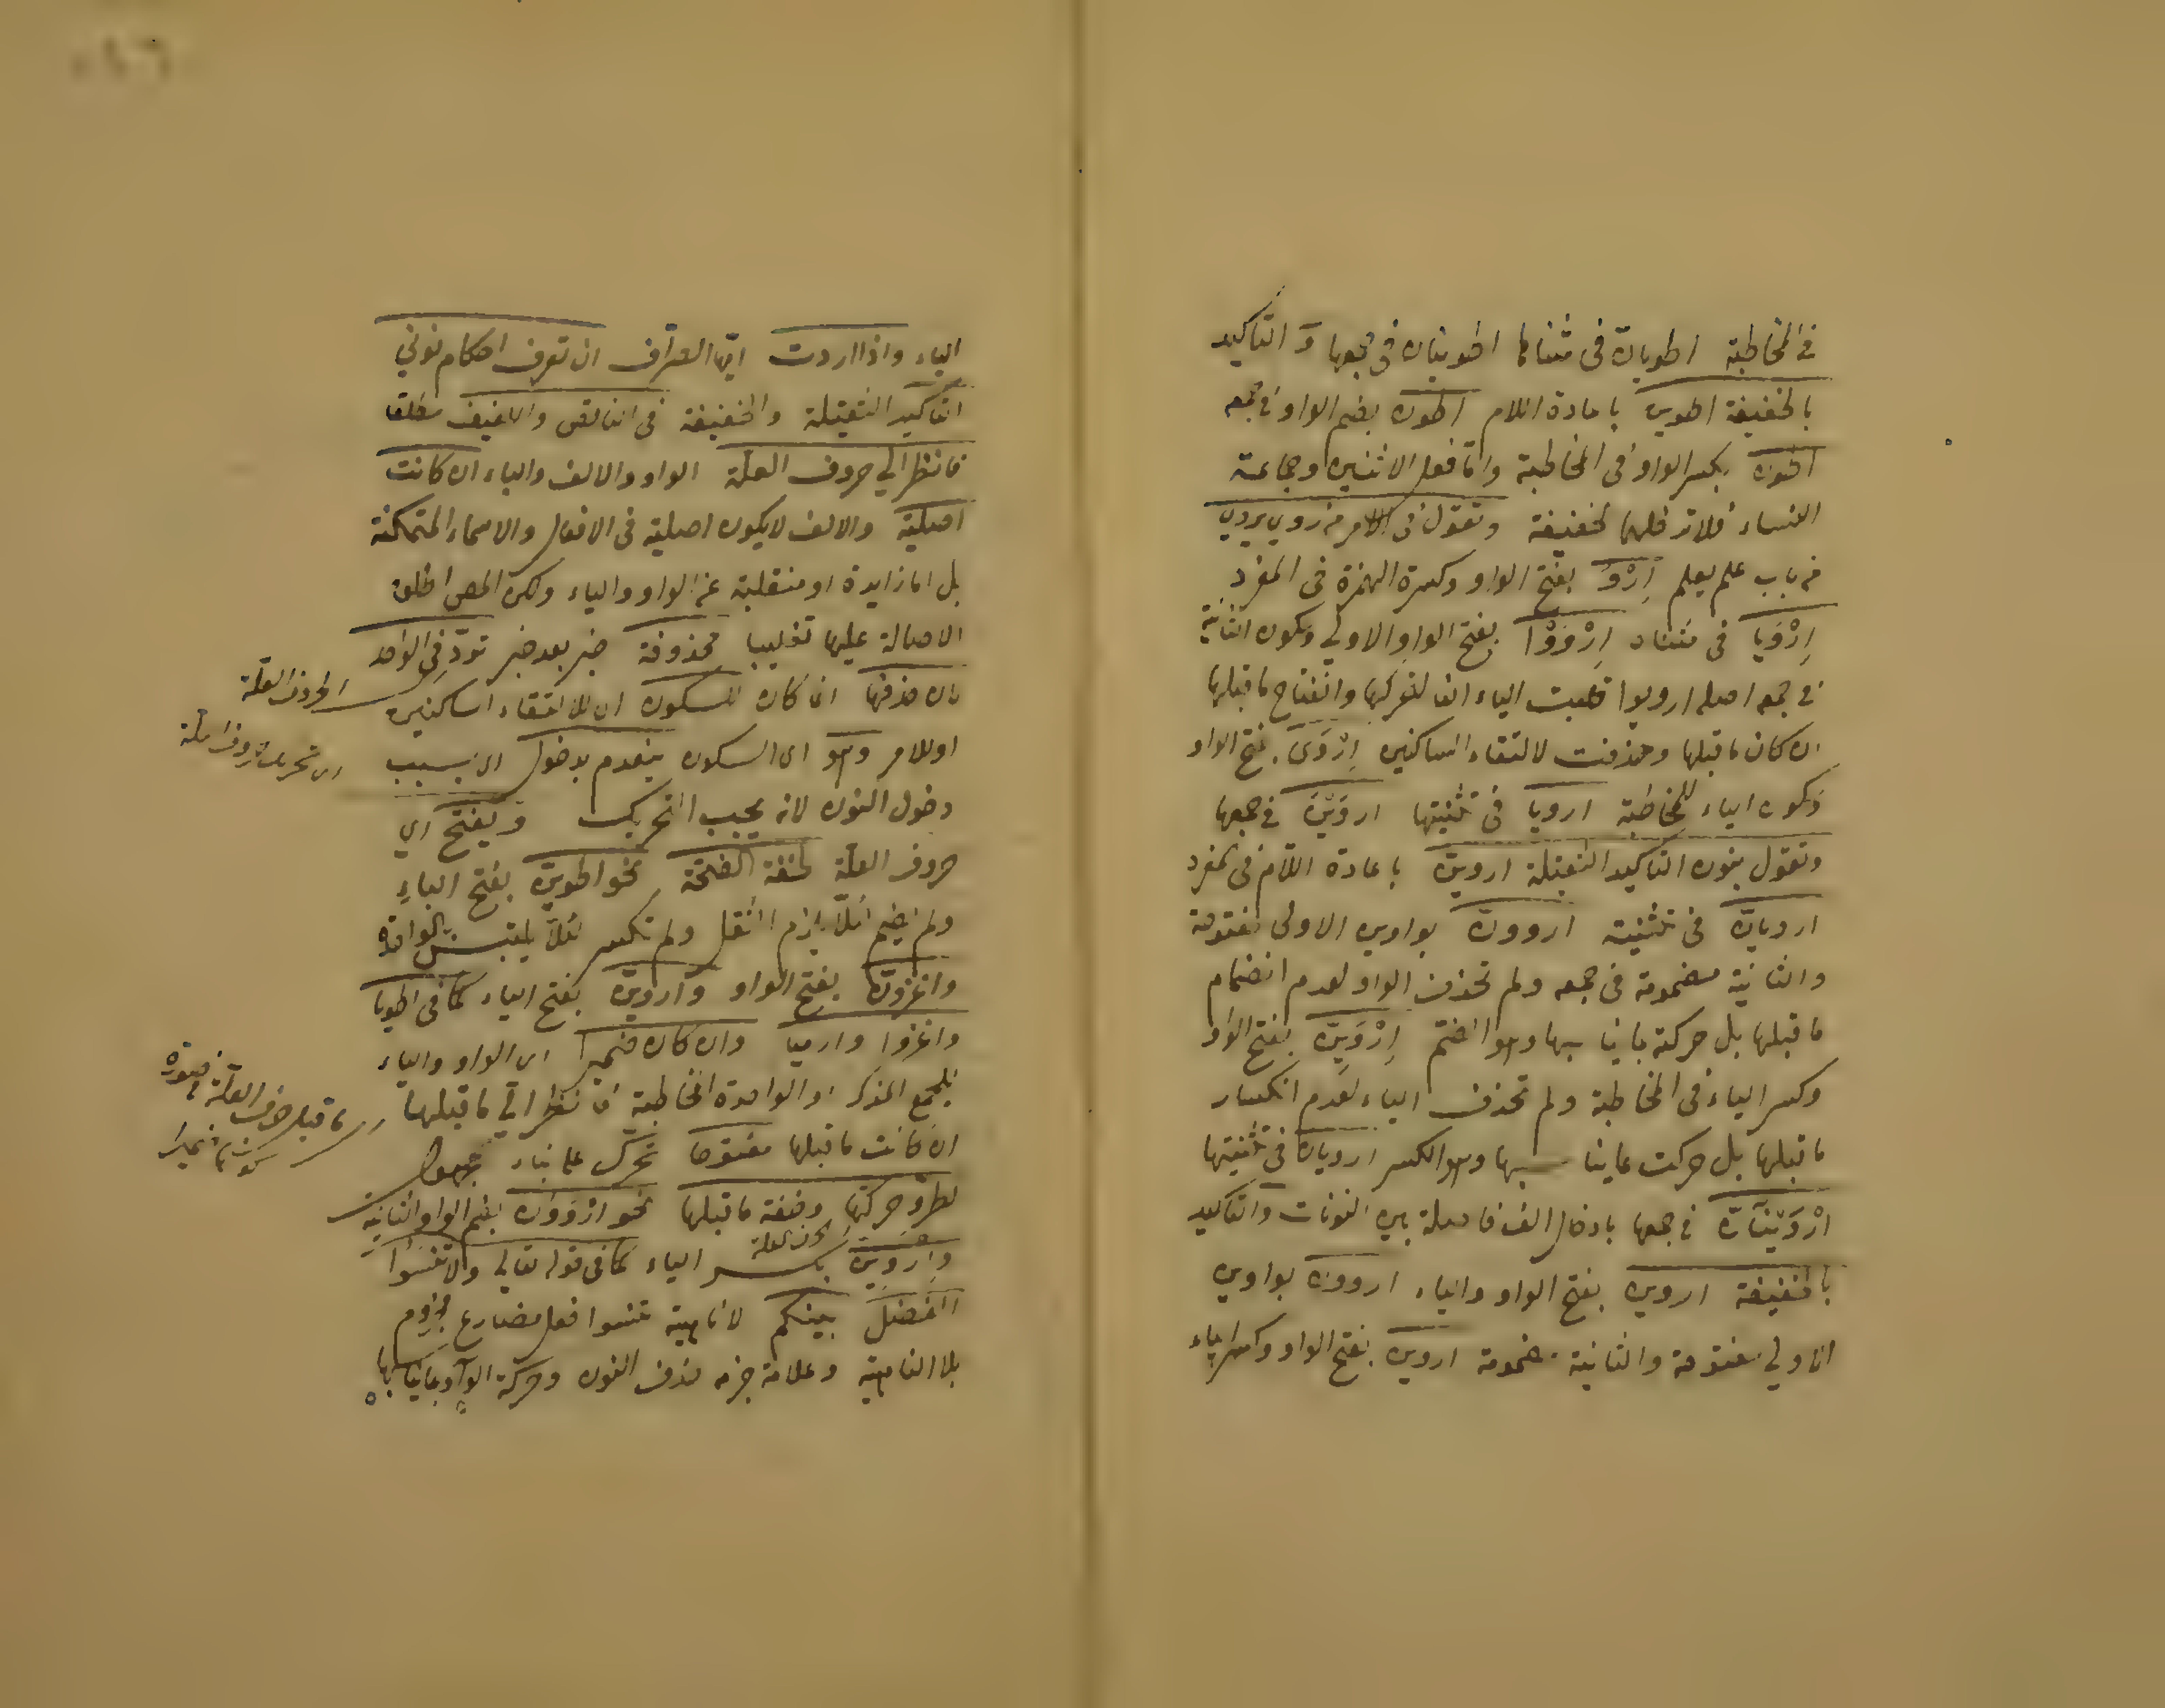 في المخاطبة اطويان في مثناها اطوينان في جمعها و التاكيد
بالخفيفة اطوين باعادة اللام اطون بضم الواو في جمعه
اطون بكسر الواو في المخاطبة واما فعل الاثنين وجماعة
النساء فلا تدخلهما الخفيفة وتقول في الامر من روي يروي
من باب علم يعلم اِرْوَ بفتح الواو وكسرة الهمزة في المفرد
اِرْوَيا في مثناه اِرْوَوْا بفتح الواو الاولي وسكون الثانية
في جمعه اصله ارويوا قلبت الياء الفا لتحركها وانفتاح ما قبلها
ان كان ما قبلها وحذفت لالتقاء الساكنين اِرْوَى بفتح الواو
وسكون الياء للمخاطبة ارويا في تثنيتها اروَيْنَ في جمعها
وتقول بنون التاكيد الثقيلة اروينّ باعادة اللام في المفرد
ارويانّ في تثنيته اروونّ بواوين الاولى مفتوحة
والثانية مضمومة في جمعه ولم تحذف الواو لعدم انضمام
ما قبلها بل حركت بما يناسبها وهو الضم اِرْوَيِنّ بفتح الواو
وكسر الياء في المخاطبة ولم تحذف الياء لعدم انكسار
ما قبلها بل حركت بما يناسبها وهو الكسر ارويان في تثنيتها
ارْوَيْنَانّ في جمعها بادخال الف فاصلة بين النونات والتاكيد
بالخفيفة اروين بفتح الواو والياء اروون بواوين
الاولي مفتوحة والثانية مضمومة اروين بفتح الواو وكسر الياء
الياء واذا اردت ايّها الصرّاف ان تعرف احكام نوني
التاكيد الثقيلة والخفيفة في الناقص واللفيف مطلقا
فانظر الي حروف العلّة الواو والالف والياء ان كانت
اصلية والالف لا يكون اصلية في الافعال والاسماء المتمكنة
بل اما زايدة او منقلبة عن الواو والياء ولكن المص اطلق
الاصالة عليها تغليبا محذوفة خبر بعد خبر تردّ في الواحد
لان حذفها انما كان للسكون اي لالتقاء الساكنين
الحروف العلّة
او للامر وهو اي السكون ينعدم بدخول اي بسبب
دخول النون لانه يجب التحريك و يفتح اي
حروف العلّة لخفة الفتحة نحو اطوينّ بفتح الياء
ولم يضم لئلّا يلزم الثقل ولم تكسر لئلّا يلتبس بالواحدة
واغزونّ بفتح الواو واروينّ بفتح الياء كما في اطويا
واغزوا وارميا وان كان ضميرا اي الواو والياء
لجمع المذكر او الواحدة المخاطبة فانظر الي ما قبلها
ما قبل حرف العلة
ان كانت ما قبلها مفتوحا تحرّك
لطروّ حركتها وخفة ما قبلها نحو ارْوَوُنّ بضم الواو الثانية
حرف العلة
واِروَيِنّ بكسر الياء كما في قوله تعالي ولا تنسَوُا
الفضل بينكم لا ناهية تنسوا فعل مضارع مجزوم
بلا الناهية وعلامة جزمه حذف النون وحركة الواو